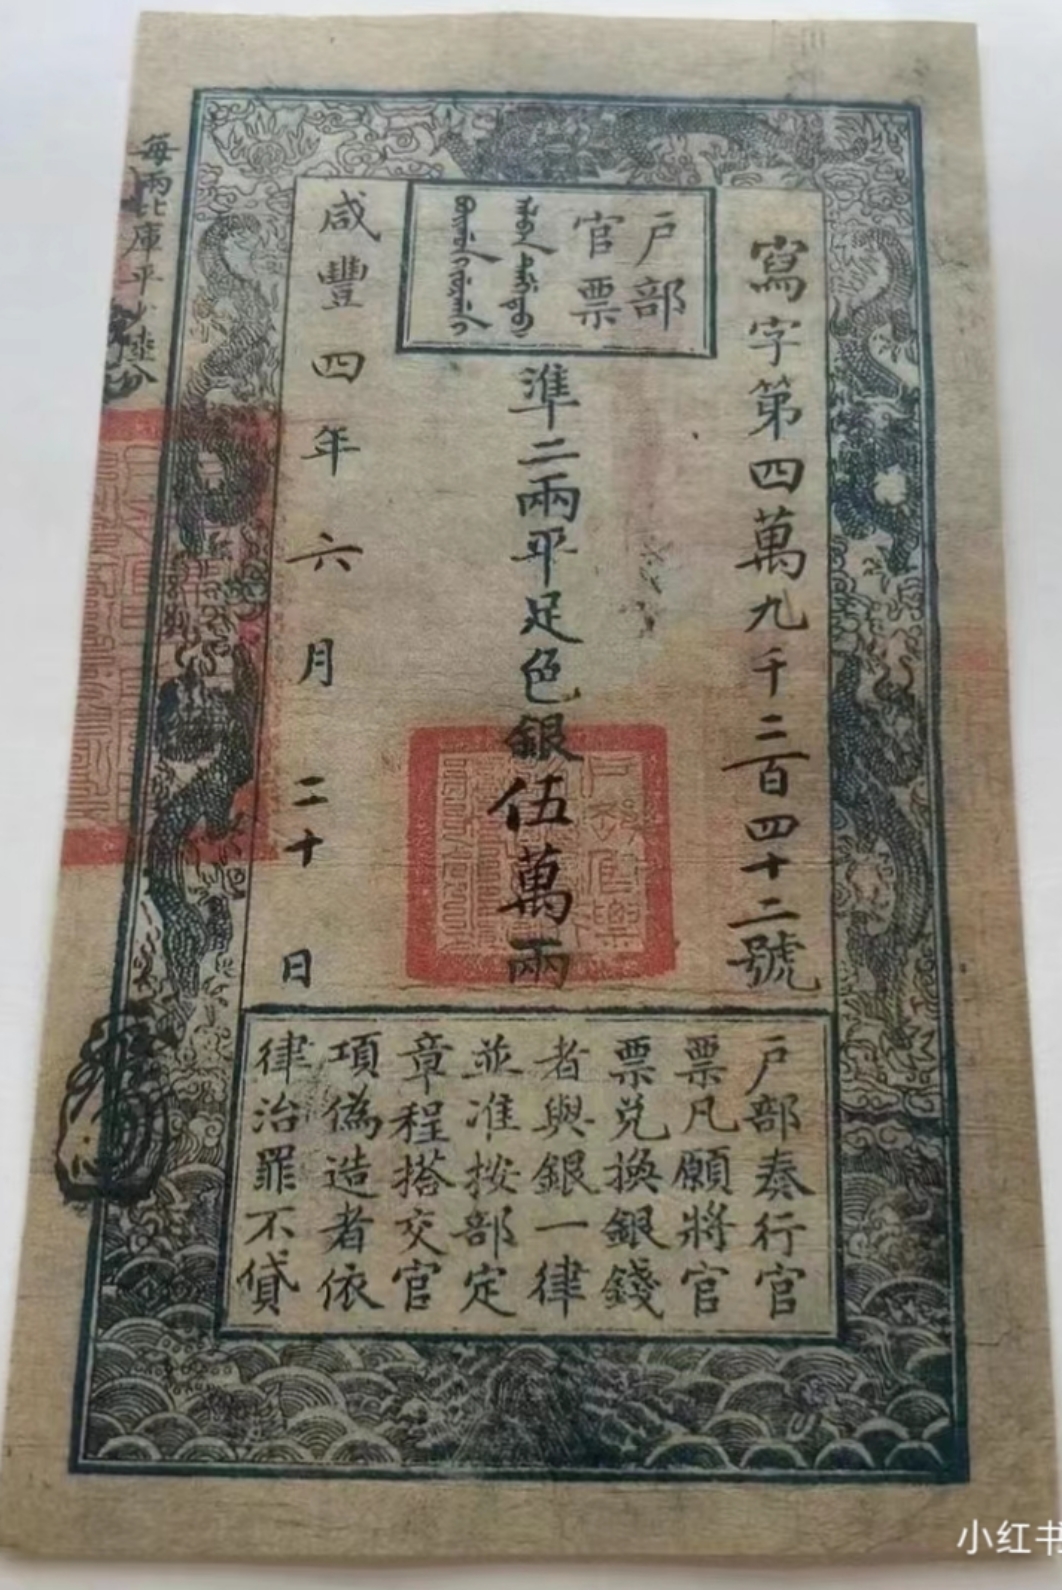 戶部
官票
寫字第四萬九千二百四十二號
準二兩平足色銀伍萬兩
咸豐四年六月二十日
每兩比庫平少陸分
戶部奏行官
票凡願將官
票兌換銀錢
者與銀一律
並准按部定
章程搭交官
項偽造者依
律治罪不貸
小红书